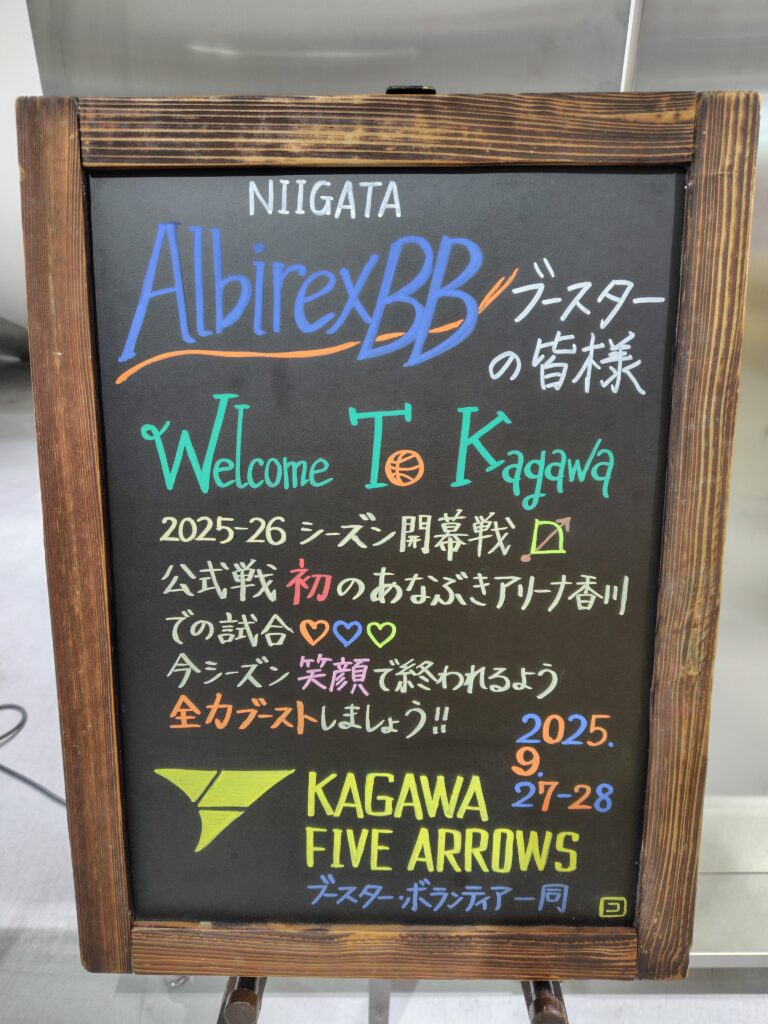 NIIGATA
AlbirexBB ブースター
の皆様
Welcome To Kagawa
2025-26 シーズン開幕戦
公式戦 初のあなぶきアリーナ香川
での試合♡♡♡
今シーズン 笑顔で終われるよう
全力ブーストしましょう!!
2025.
9.
27-28
KAGAWA
FIVE ARROWS
ブースター・ボランティア一同
コ